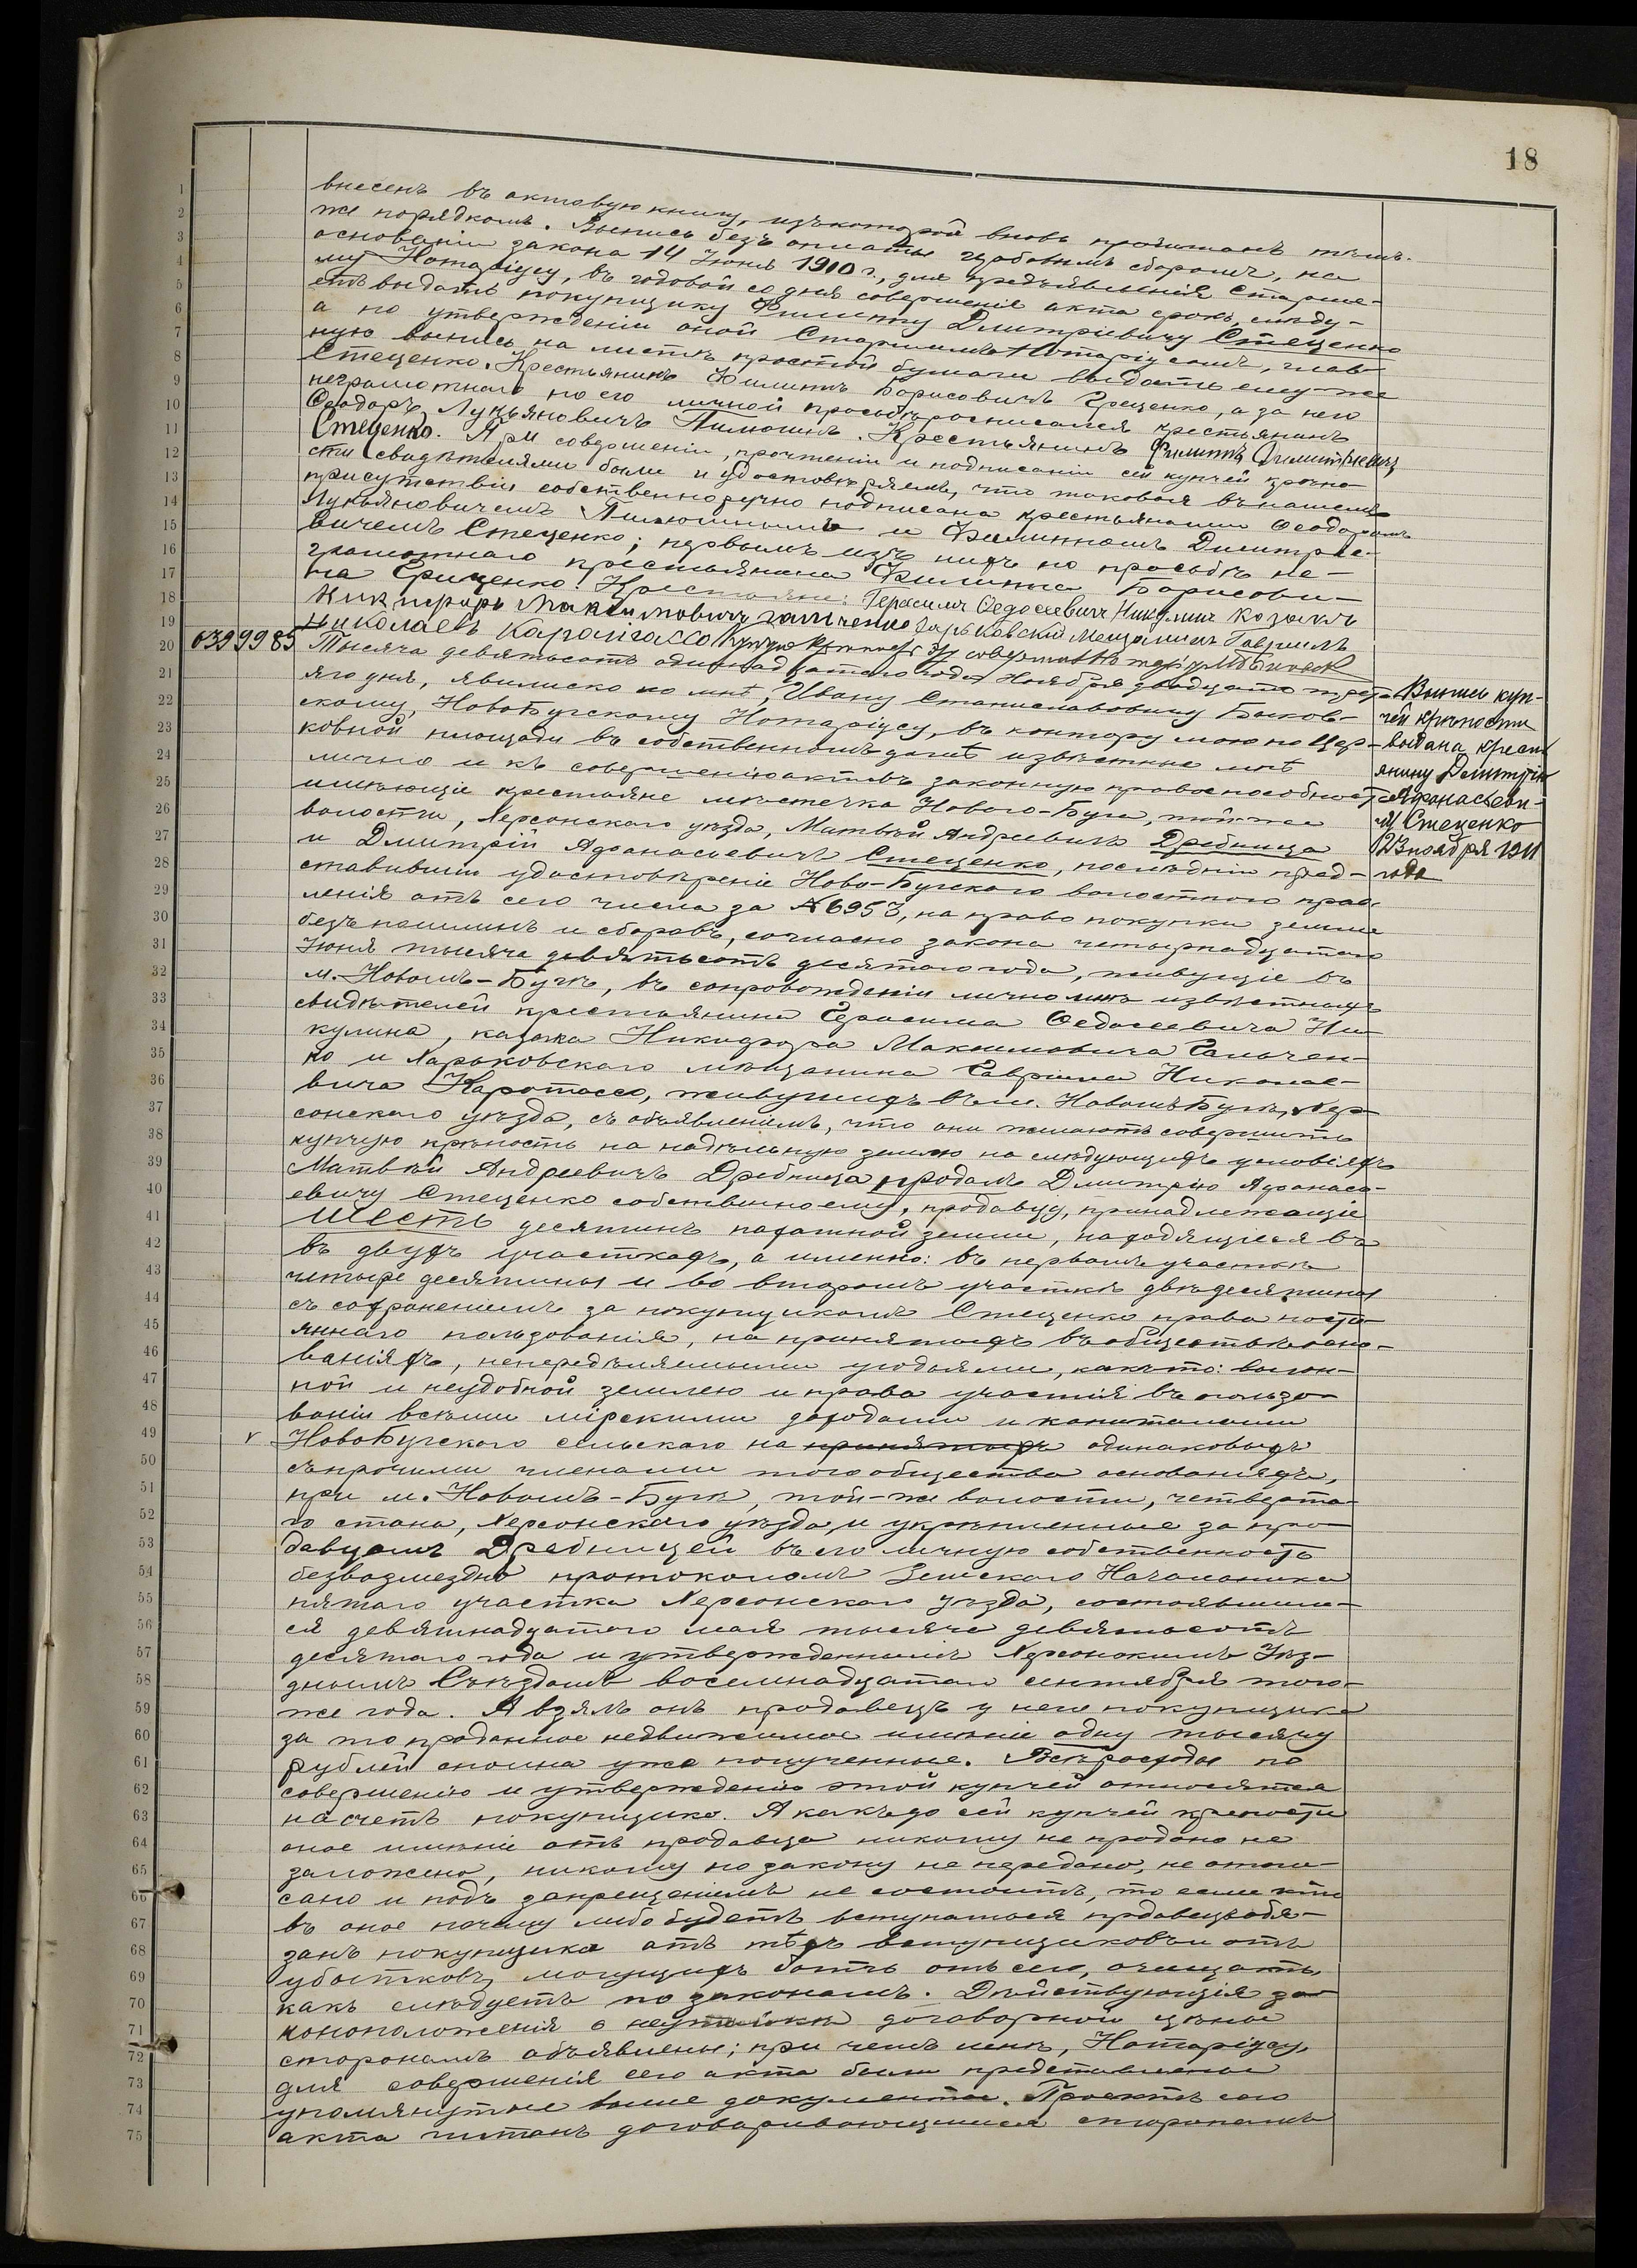 18
внесенъ въ актовую книгу, изъ которой вновь прочитанъ тѣмъ-
же порядкомъ. Выпись безъ оплаты гербовымъ сборомъ, на
основаніи закона 14 Іюня 1910 г., для предъявленія Старше-
му Нотаріусу, въ годовой со дня совершенія акта срокъ, слѣду-
етъ выдать покупщику Филиппу Дмитріевичу Стеценко
а по утвержденіи оной Старшимъ Нотаріусомъ, глав-
ную выпись на листѣ простой бумаги выдать ему-же
Стеценко. Крестьянинъ Филиппъ Борисовичъ Гриценко, а за него
неграмотнаго по его личной просьбѣ росписался крестьянинъ
Ѳеодоръ Лукьяновичъ Пилюгинъ. Крестьянинъ Филиппъ Димитріевичъ
Стеценко. При совершеніи, прочтеніи и подписаніи сей купчей крѣпо-
сти свидѣтелями были и удостовѣряемъ, что таковая въ нашемъ
присутствіи собственноручно подписана крестьянами Ѳеодоромъ
Лукьяновичемъ и Филиппомъ Дмитріе-
вичемъ Стеценко; первымъ изъ нихъ по просьбѣ не-
грамотнаго крестьянина Филиппа Борисови-
ча Гриценко. Крестьяне: Герасимъ Ѳедосеевичъ Никулинъ Козакъ
Никифоръ Максимовичъ Галиченко Харьковскій Мещанинъ Гавріилъ
Николаевъ
039 99 85 Тысяча девятьсотъ одинадцатаго года Ноября двадцать треть-
яго дня, явились ко мнѣ, Ивану Станиславовичу Быков-
скому, НовоБугскому Нотаріусу, въ контору мою на Цер-
ковной площади въ собственномъ домѣ извѣстные мнѣ
лично и къ совершенію актовъ законную правоспособность
имѣющіе крестьяне мѣстечка Новаго-Буга, той-же
волости, Херсонскаго уѣзда, Матвѣй Андреевичъ Дребница
и Дмитрій Аѳанасьевичъ Стеценко, послѣдній пред-
ставившій удостовѣреніе Ново-Бугскаго волостного прав-
ленія отъ сего числа за № 6953, на право покупки земли
безъ пошлинъ и сборовъ, согласно закона четырнадцатаго
Іюня тысяча девятьсотъ десятаго года, живущіе въ
м. Новомъ-Бугѣ, въ сопровожденіи лично мнѣ извѣстныхъ
свидѣтелей крестьянина Герасима Ѳедосеевича Ни-
кулина, казака Никифора Максимовича Гальчен-
ко и Харьковскаго мѣщанина Гавріила Николае-
вича живущихъ въ м. Новомъ Бугѣ, Хер-
сонскаго уѣзда, съ объявленіемъ, что они желаютъ совершить
купчую крѣпость на надѣльную землю на слѣдующихъ условіяхъ
Матвѣй Андреевичъ Дребница продалъ Дмитрію Аѳанась-
евичу Стеценко собственно ему, продавцу, принадлежащіе
шесть десятинъ пахатной земли, находящіеся въ
въ двухъ участкахъ, а именно: въ первомъ участкѣ
четыре десятины и во второмъ участкѣ двѣ десятины
съ сохраненіемъ за покупщикомъ Стеценко права посто-
яннаго пользованія, на принятыхъ въ обществѣ осно-
ваніяхъ, непередѣляемыми угодьями, какъ то: выгон-
ной и неудобной землею и права участія въ пользо-
ваніи всѣми мірскими доходами и капиталами
v НовоБугскаго сельскаго на принятыхъ одинаковыхъ
съ прочими членами того общества основаніяхъ,
при м. Новомъ-Бугѣ, той-же волости, четверта-
го стана, Херсонскаго уѣзда и укрѣпленные за про-
давцомъ Дребницей въ его личную собственность
безвозмездно протоколомъ Земскаго Начальника
пятаго участка Херсонскаго уѣзда, состоявшим-
ся девятнадцатаго мая тысяча девятьсотъ
десятаго года и утвержденнымъ Херсонскимъ Уѣз-
днымъ Съѣздомъ восемнадцатаго сентября того-
же года. А взялъ онъ продавецъ у него покупщика
за то проданное недвижимое имѣніе одну тысячу
рублей сполна уже полученные. Всѣ расходы по
совершенію и утвержденію этой купчей относятся
на счетъ покупщика. А какъ до сей купчей крѣпости
оное имѣніе отъ продавца никому не продано не
заложено, никому по закону не передано, не отпи-
сано и подъ запрещеніемъ не состоитъ, то если кто
въ оное почему либо будетъ вступаться продавецъ обя-
занъ покупщика отъ тѣхъ вступщиковъ и отъ
убытковъ, могущихъ быть отъ сего, очищать,
какъ слѣдуетъ по законамъ. Дѣйствующія за-
коноположенія о неутайкѣ договорной цѣны
сторонамъ объявлены; при чемъ мнѣ, Нотаріусу,
для совершенія сего акта были представлены
упомянутые выше документы. Проектъ сего
акта читанъ договаривающимися сторонамъ
Выпись куп-
чей крѣпости
выдана крестъ
янину Дмитрію
Аѳанасьеви-
чу Стеценко
23 ноября 1911
года
1
2
3
4
5
6
7
8
9
10
11
12
13
14
15
16
17
18
19
20
21
22
23
24
25
26
27
28
29
30
31
32
33
34
35
36
37
38
39
40
41
42
43
44
45
46
47
48
49
50
51
52
53
54
55
56
57
58
59
60
61
62
63
64
65
66
67
68
69
70
71
72
73
74
75